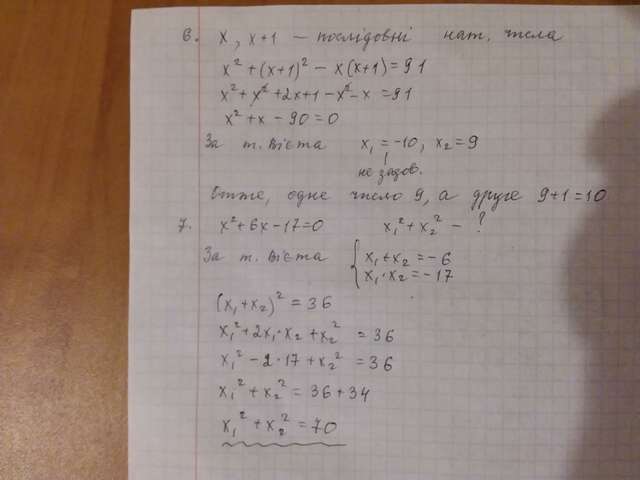 6. x, x+1 – послідовні нат. числа
x² + (x+1)² – x(x+1) = 91
x² + x² + 2x + 1 – x² – x = 91
x² + x – 90 = 0
За т. Вієта x₁ = –10, x₂ = 9
не задов.
Отже, одне число 9, а друге 9+1=10
7. x² + 6x – 17 = 0 x₁² + x₂² – ?
За т. Вієта { x₁ + x₂ = –6
x₁ · x₂ = –17
(x₁ + x₂)² = 36
x₁² + 2x₁·x₂ + x₂² = 36
x₁² – 2·17 + x₂² = 36
x₁² + x₂² = 36 + 34
x₁² + x₂² = 70